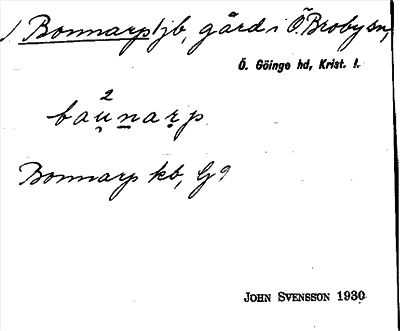 Bonnarp/jb, gård i Ö. Broby sn,
Ö. Göinge hd, Krist. l.
baùnarp
Bonnarp kb, G9
JOHN SVENSSON 1930